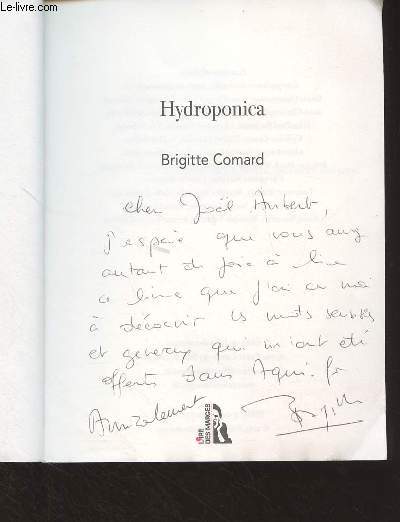 © Le-Livre.com
Hydroponica
Brigitte Comard
Cher Joël Aubert,
j'espère que vous aurez
autant de joie à lire
ce livre que j'ai eu moi
à découvrir les mots sensibles
et généreux qui m'ont été
offerts dans Aqui.fr
Amicalement
Brigitte
LIRE
DES MARGES